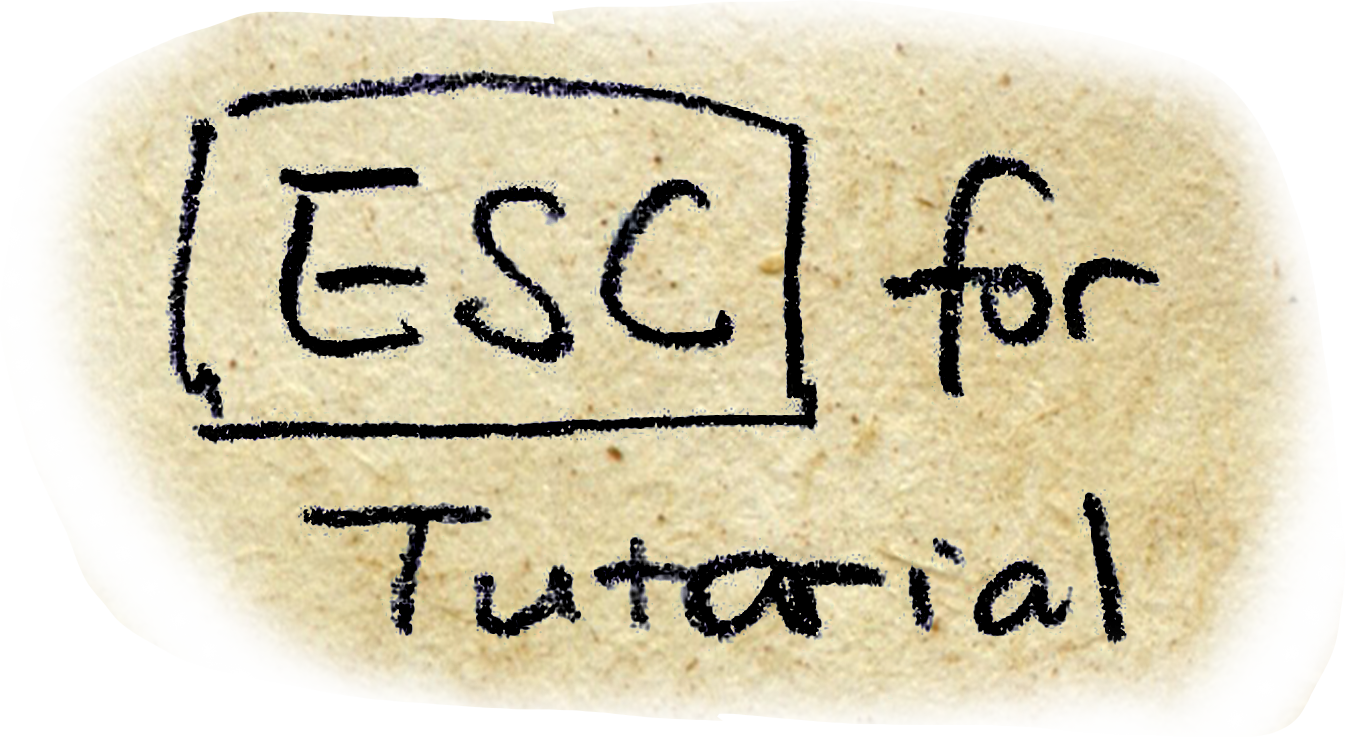 ESC for
Tutorial